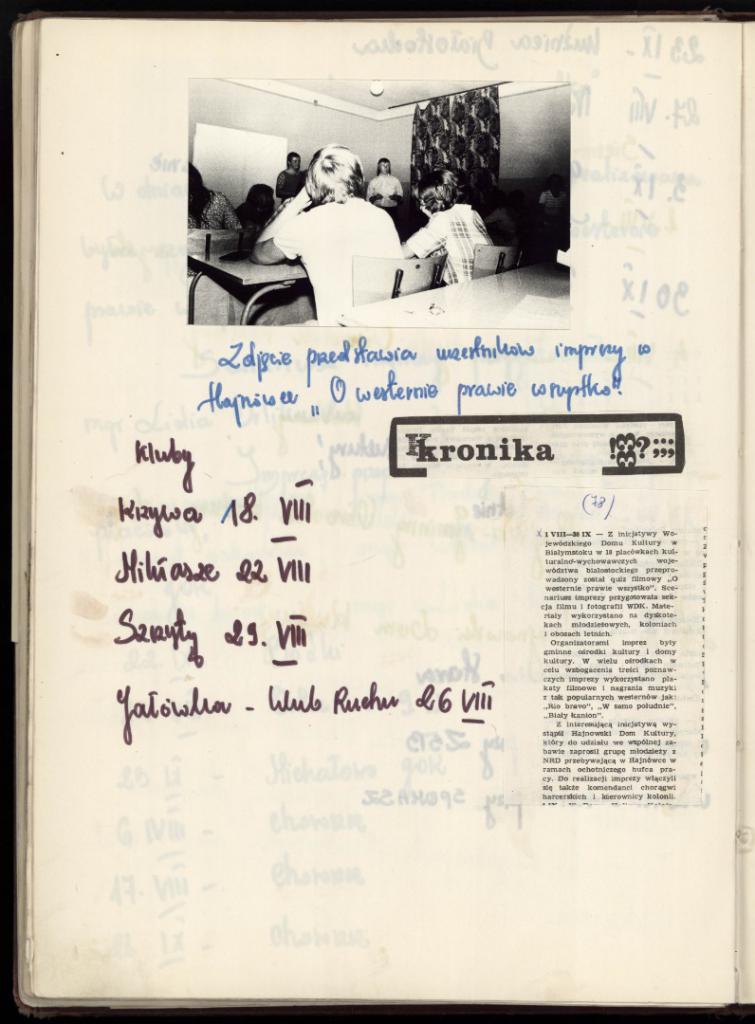 Zdjęcie przedstawia uczestników imprezy w
Hajnówce „O westernie prawie wszystko".
Kronika !?;;;
Kluby
Krzywa 18. VIII
Mikłasze 22 VIII
Szczyty 29. VIII
Jałówka - Klub Ruchu 26 VIII
(78)
x 1 VIII—30 IX — Z inicjatywy Wo-
jewódzkiego Domu Kultury w
Białymstoku w 18 placówkach kul-
turalno-wychowawczych woje-
wództwa białostockiego przepro-
wadzony został quiz filmowy „O
westernie prawie wszystko". Sce-
nariusz imprezy przygotowała sek-
cja filmu i fotografii WDK. Mate-
riały wykorzystano na dyskote-
kach młodzieżowych, koloniach
i obozach letnich.
Organizatorami imprez były
gminne ośrodki kultury i domy
kultury. W wielu ośrodkach w
celu wzbogacenia treści poznaw-
czych imprezy wykorzystano pla-
katy filmowe i nagrania muzyki
z tak popularnych westernów jak:
„Rio bravo", „W samo południe",
„Biały kanion".
Z interesującą inicjatywą wy-
stąpił Hajnowski Dom Kultury,
który do udziału we wspólnej za-
bawie zaprosił grupę młodzieży z
NRD przebywającą w Hajnówce w
ramach ochotniczego hufca pra-
cy. Do realizacji imprezy włączyli
się także komendanci chorągwi
harcerskich i kierownicy kolonii.